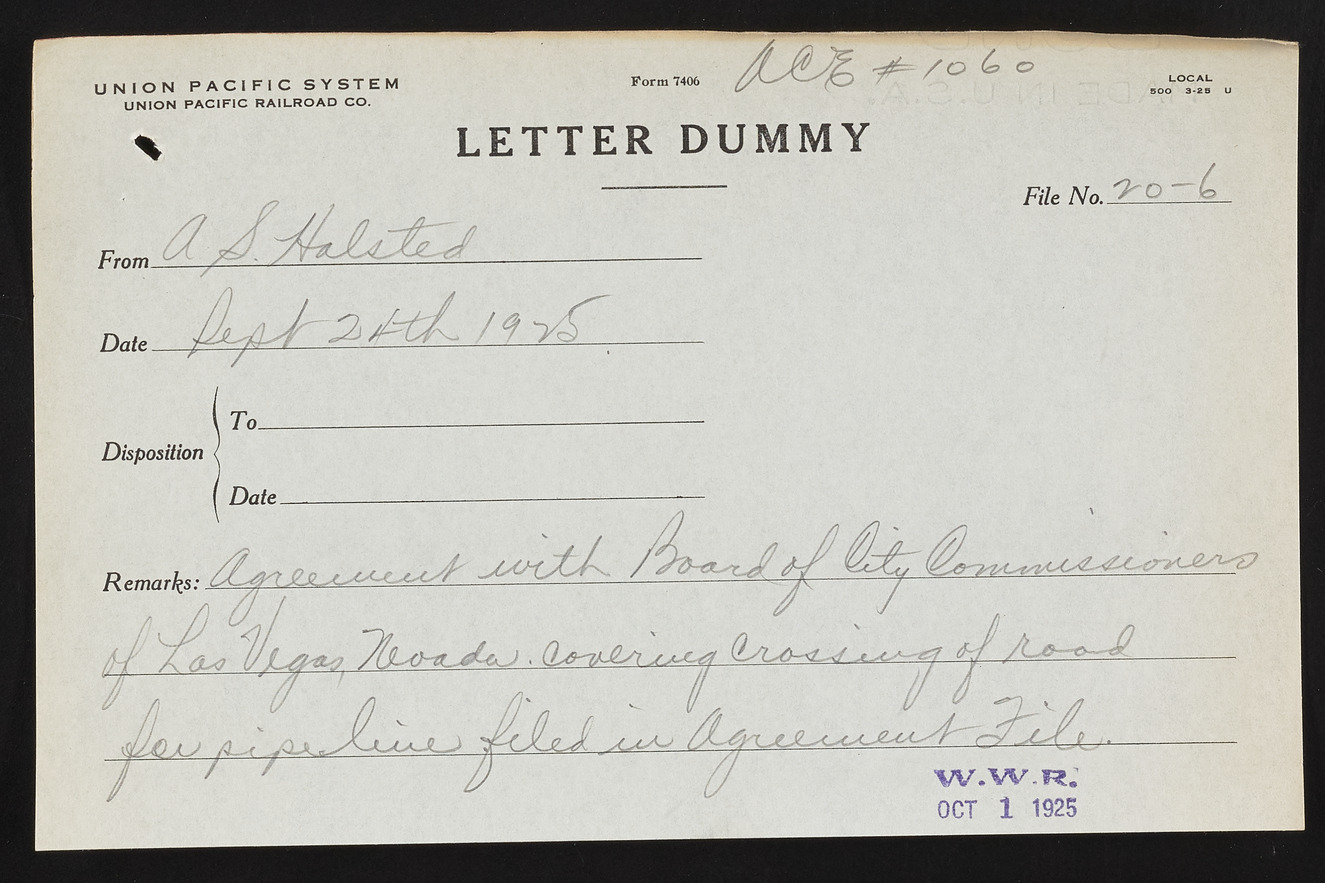 UNION PACIFIC SYSTEM
UNION PACIFIC RAILROAD CO.
Form 7406
ACE #1060
LOCAL
500 3-25 U
LETTER DUMMY
File No. 20-6
From A S. Halsted
Date Sept 24th 1925
Disposition
To
Date
Remarks: Agreement with Board of City Commissioners
of Las Vegas, Nevada. covering crossing of road
for pipe line filed in Agreement File.
W.W.R.
OCT 1 1925